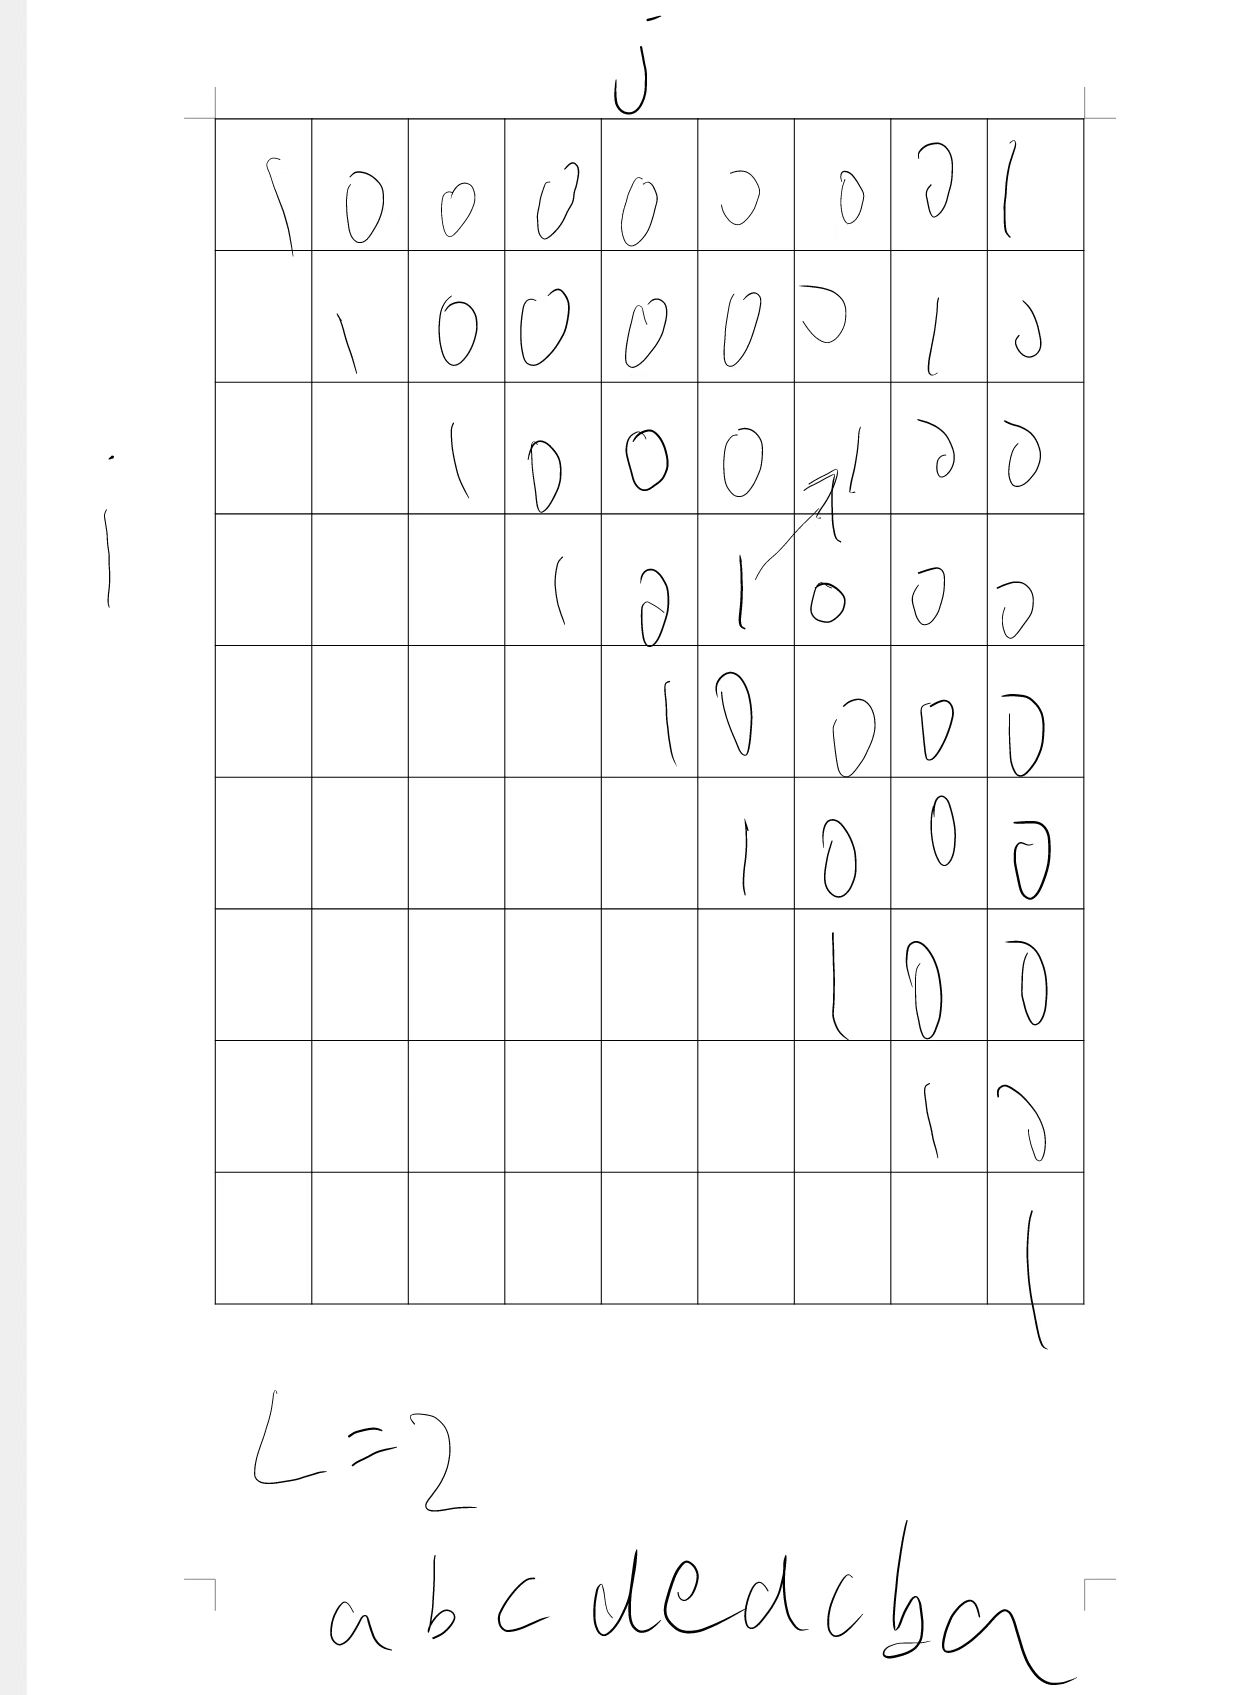 j
1 0 0 0 0 0 0 0 1
1 0 0 0 0 0 1 0
1 0 0 0 1 0 0
i
1 0 1 0 0 0
1 0 0 0 0
1 0 0 0
1 0 0
1 0
1
L=2
abcdedcba